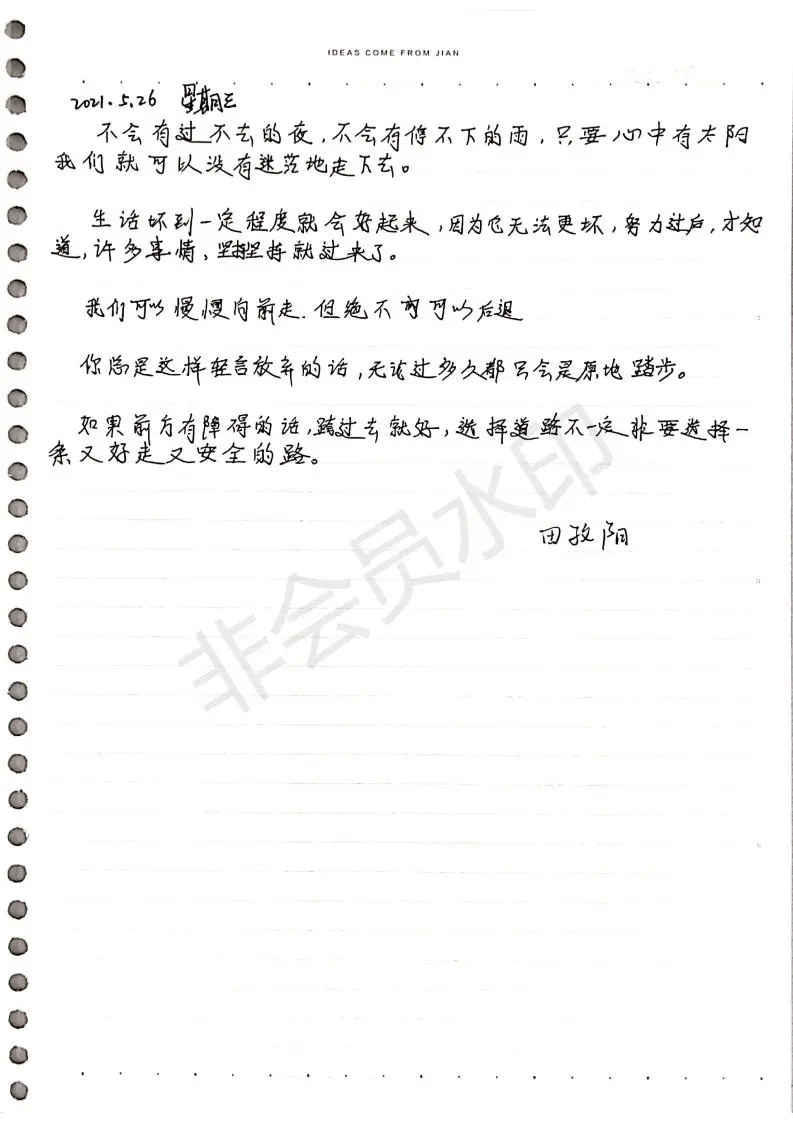 IDEAS COME FROM JIAN
2021.5.26 星期三
不会有过不去的夜,不会有停不下的雨,只要心中有太阳
我们就可以没有迷茫地走下去。
生活坏到一定程度就会好起来,因为它无法更坏,努力过后,才知
道,许多事情,坚持坚持就过来了。
我们可以慢慢向前走.但绝不可可以后退
你总是这样轻言放弃的话,无论过多久都只会是原地踏步。
如果前方有障碍的话,跨过去就好,选择道路不一定非要选择一
条又好走又安全的路。
田孜阳
非会员水印